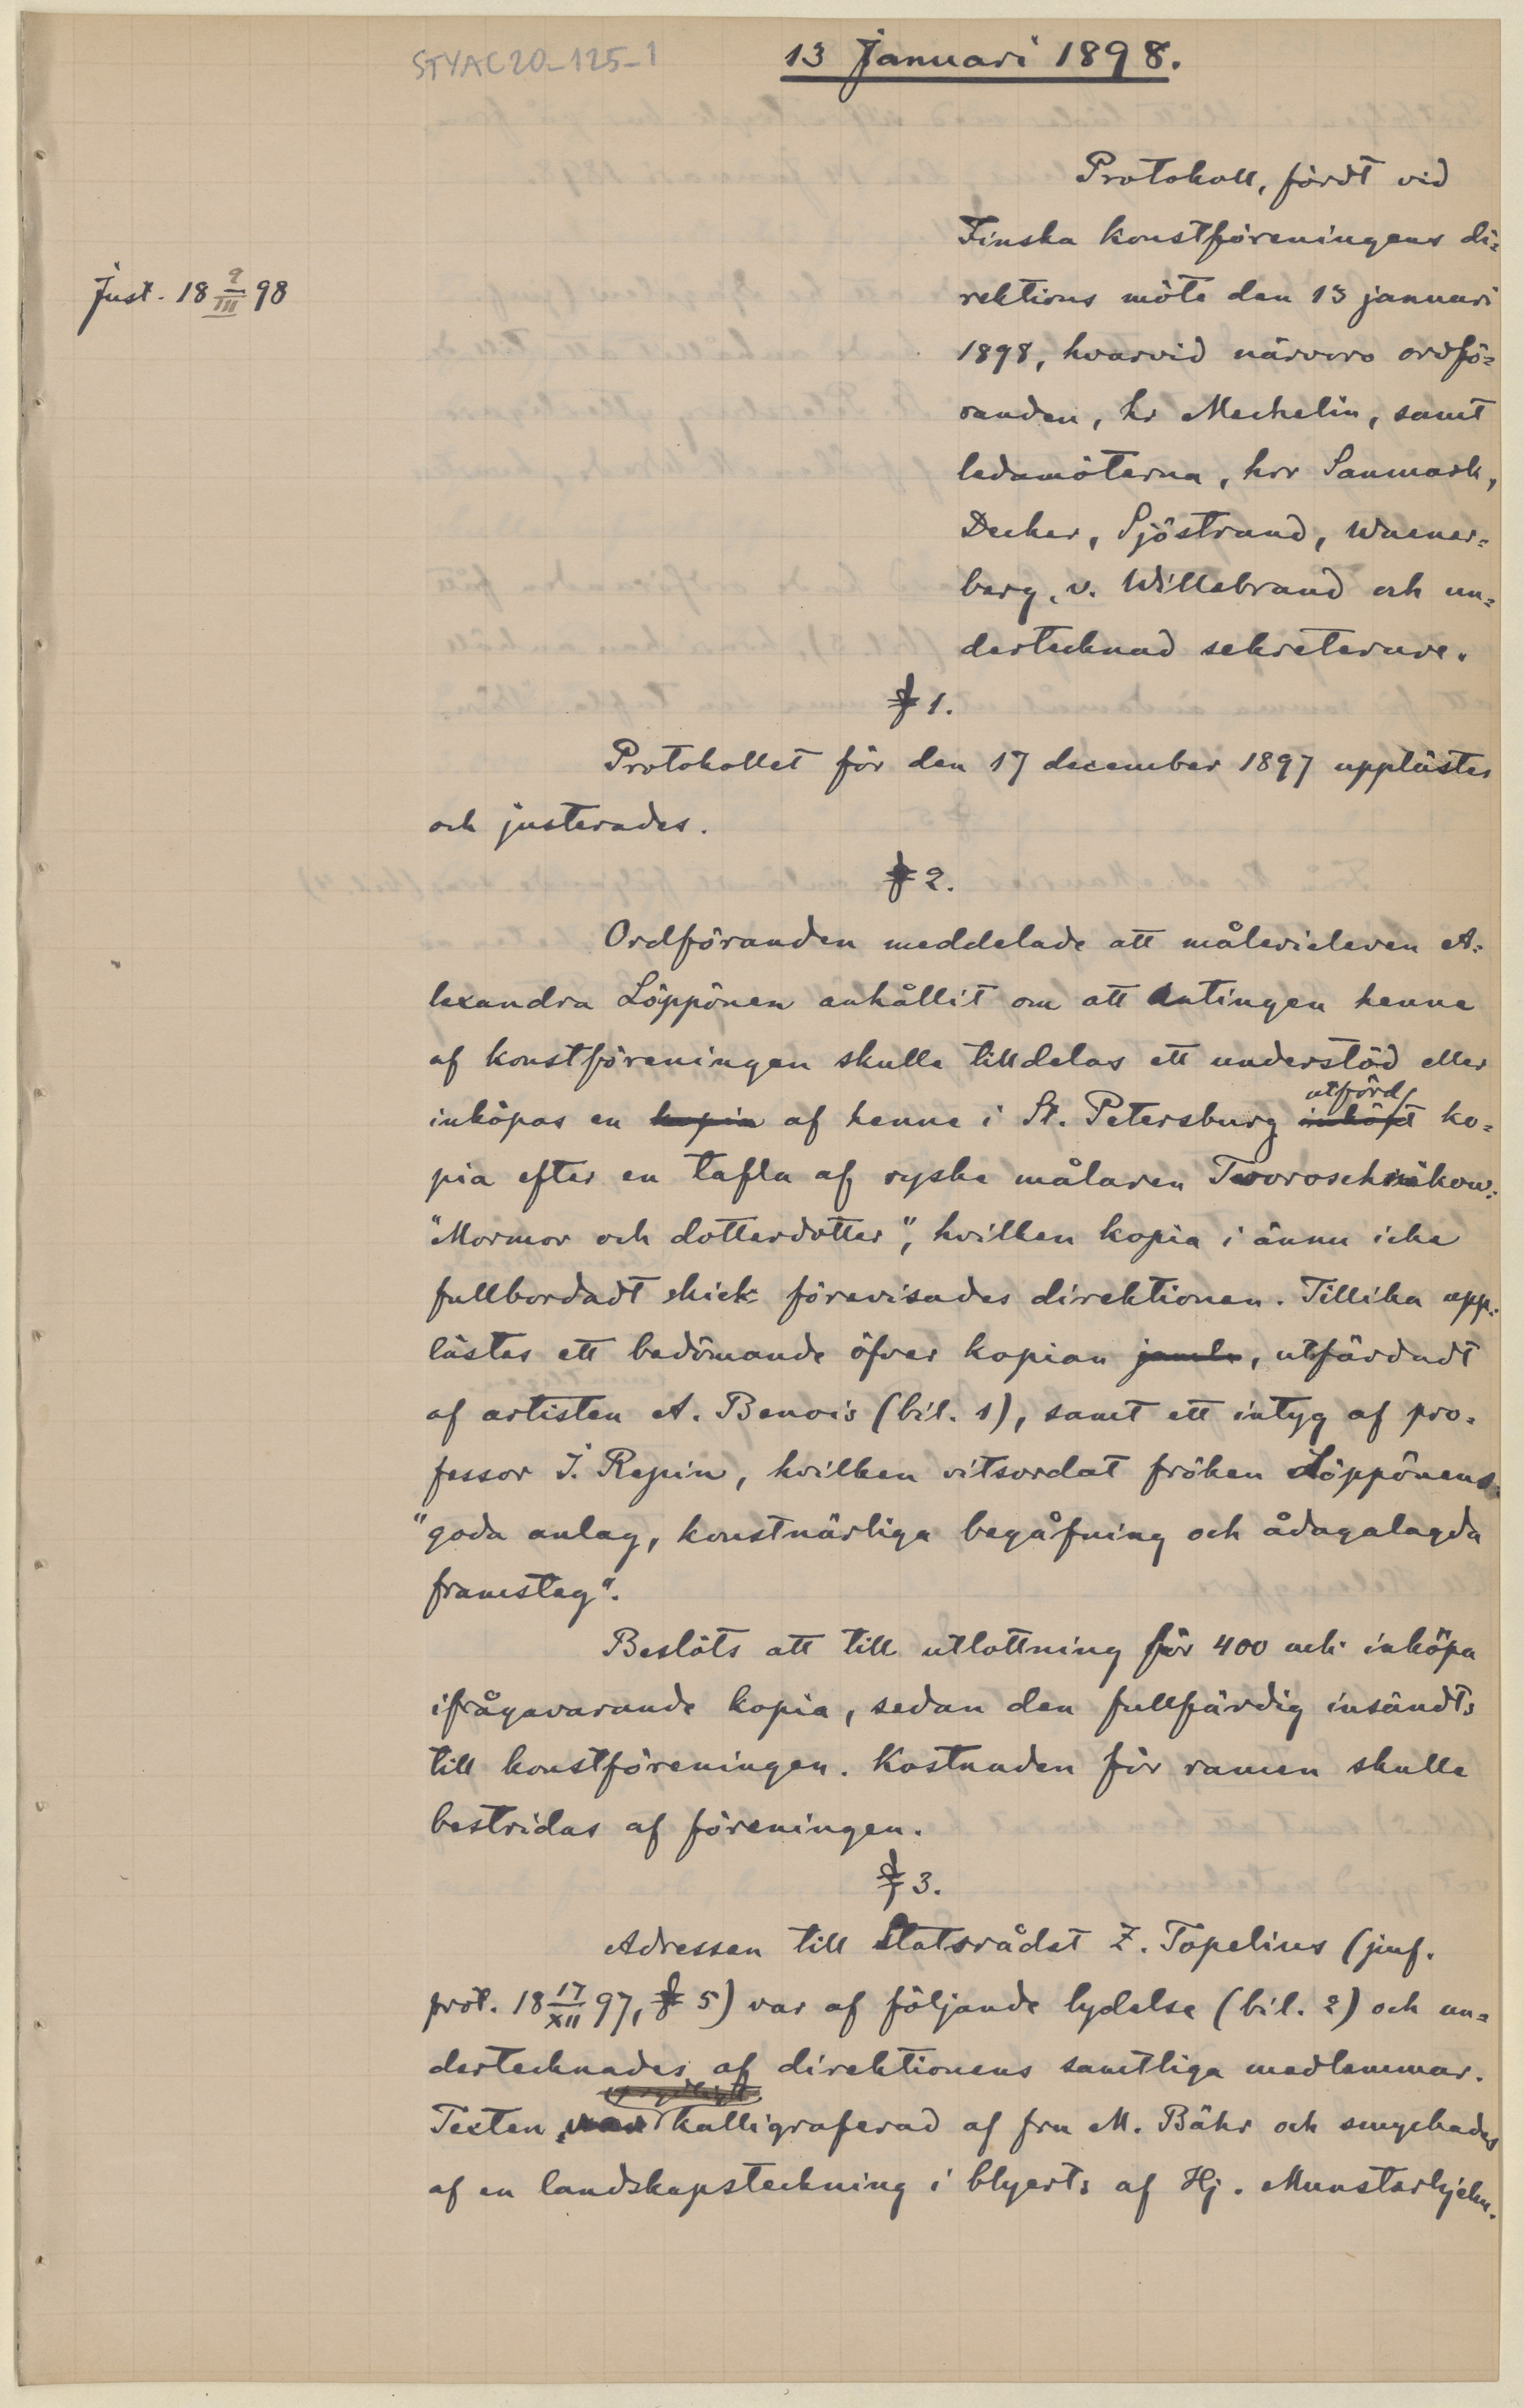 STYAC20-125-1
13 Januari 1898.
Just. 18 9/III 98
Protokoll, fördt vid
Finska konstföreningens di=
rektions möte den 13 januari
1898, hvarvid närvoro ordfö=
randen, hr Mechelin, samt
ledamöterna, hrr Sanmark,
Decker, Sjöstrand, Waener=
berg, v. Willebrand och un=
dertecknad sekreterare.
§ 1.
Protokollet för den 17 december 1897 upplästes
och justerades.
§ 2.
Ordföranden meddelade att målerieleven A=
lexandra Löppönen anhållit om att antingen henne
af konstföreningen skulle tilldelas ett understöd eller
utförd
inköpas en kopia af henne i St. Petersburg inköpt ko=
pia efter en tafla af ryske målaren Tworoschnikow:
"Mormor och dotterdotter", hvilken kopia i ännu icke
fullbordadt skick förevisades direktionen. Tillika upp=
lästes ett bedömande öfver kopian jemte, utfärdadt
af artisten A. Benois (bil. 1), samt ett intyg af pro=
fessor I. Repin, hvilken vitsordat fröken Löppönens
"goda anlag, konstnärliga begåfning och ådagalagda
framsteg".
Beslöts att till utlottning för 400 mk inköpa
ifrågavarande kopia, sedan den fullfärdig insändts
till konstföreningen. Kostnaden för ramen skulle
bestridas af föreningen.
§ 3.
Adressen till Statsrådet Z. Topelius (jmf.
prot. 18 17/XII 97, § 5) var af följande lydelse (bil. 2) och un=
dertecknades af direktionens samtliga medlemmar.
Texten var kalligraferad af fru M. Bähr och smyckades
af en landskapsteckning i blyerts af Hj. Munsterhjelm.